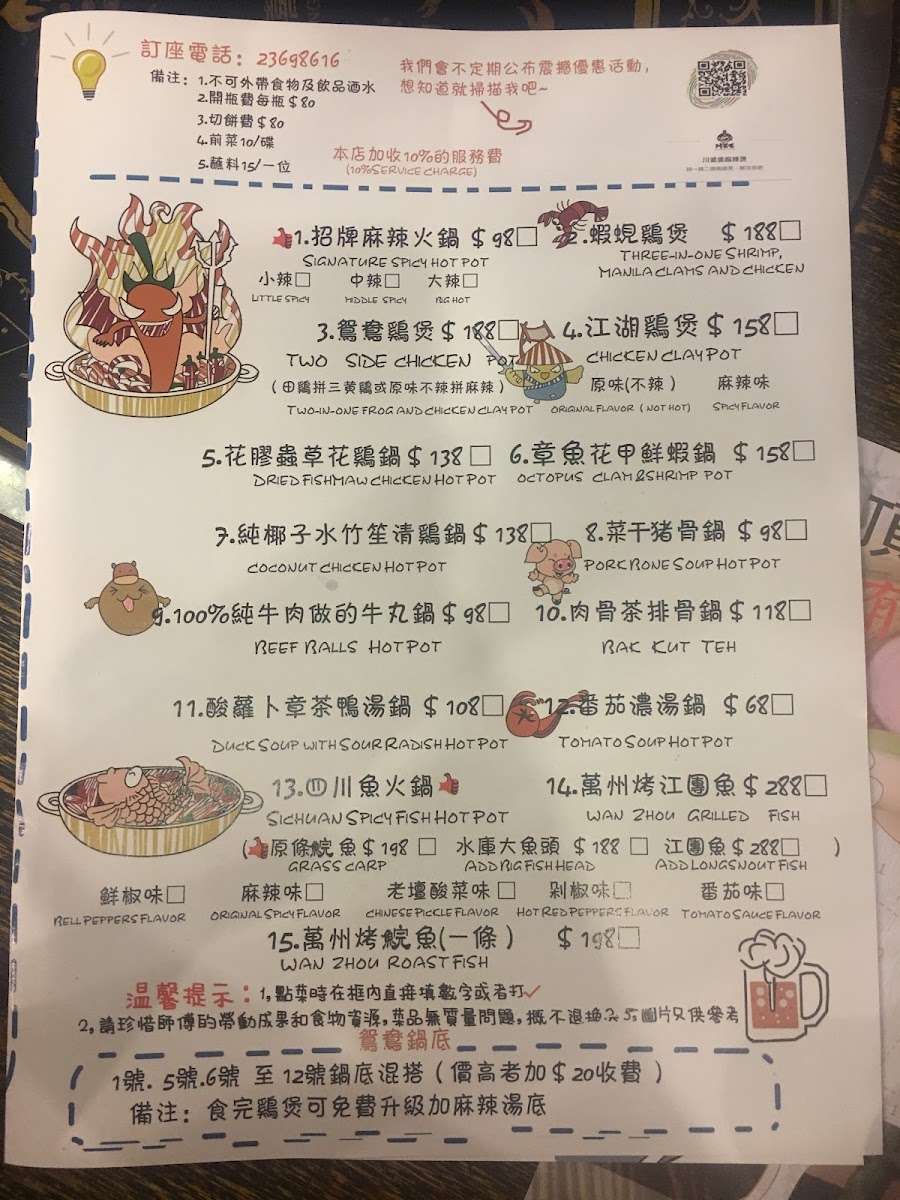 訂座電話：23698616
備注：1.不可外帶食物及飲品酒水
2.開瓶費每瓶$80
3.切餅費$80
4.前菜10/碟
5.蘸料15/一位
我們會不定期公布震撼優惠活動，
想知道就掃描我吧~
本店加收10%的服務費
(10%SERVICE CHARGE)
川婆婆麻辣燙
1.招牌麻辣火鍋 $98□
SIGNATURE SPICY HOT POT
小辣□ 中辣□ 大辣□
LITTLE SPICY MIDDLE SPICY BIG HOT
2.蝦蜆鷄煲 $188□
THREE-IN-ONE SHRIMP,
MANILA CLAMS AND CHICKEN
3.鴛鴦鷄煲$188□
TWO SIDE CHICKEN POT
(田鷄拼三黄鷄或原味不辣拼麻辣)
TWO-IN-ONE FROG AND CHICKEN CLAY POT
4.江湖鷄煲$158□
CHICKEN CLAY POT
原味(不辣) 麻辣味
ORIGNAL FLAVOR (NOT HOT) SPICY FLAVOR
5.花膠蟲草花鷄鍋$138□
DRIED FISHMAW CHICKEN HOT POT
6.章魚花甲鮮蝦鍋 $158□
OCTOPUS CLAM & SHRIMP POT
7.純椰子水竹笙清鷄鍋$138□
COCONUT CHICKEN HOT POT
8.菜干猪骨鍋 $98□
PORK BONE SOUP HOT POT
9.100%純牛肉做的牛丸鍋$98□
BEEF BALLS HOT POT
10.肉骨茶排骨鍋$118□
BAK KUT TEH
11.酸蘿卜章茶鴨湯鍋 $108□
DUCK SOUP WITH SOUR RADISH HOT POT
12.番茄濃湯鍋 $68□
TOMATO SOUP HOT POT
13.四川魚火鍋
SICHUAN SPICY FISH HOT POT
14.萬州烤江團魚$288□
WAN ZHOU GRILLED FISH
(原條鯇魚$198 □ 水庫大魚頭 $188 □ 江團魚$288□ )
GRASS CARP ADD BIG FISH HEAD ADD LONGSNOUT FISH
鮮椒味□ 麻辣味□ 老壇酸菜味□ 剁椒味□ 番茄味□
BELL PEPPERS FLAVOR ORIGINAL SPICY FLAVOR CHINESE PICKLE FLAVOR HOT RED PEPPERS FLAVOR TOMATO SAUCE FLAVOR
15.萬州烤鯇魚(一條) $198□
WAN ZHOU ROAST FISH
温馨提示：1,點菜時在框內直接填數字或者打✓
2,請珍惜師傅的勞動成果和食物資源,菜品無質量問題,概不退換 圖片只供參考
鴛鴦鍋底
1號. 5號.6號 至 12號鍋底混搭 ( 價高者加$20收費 )
備注：食完鷄煲可免費升級加麻辣湯底